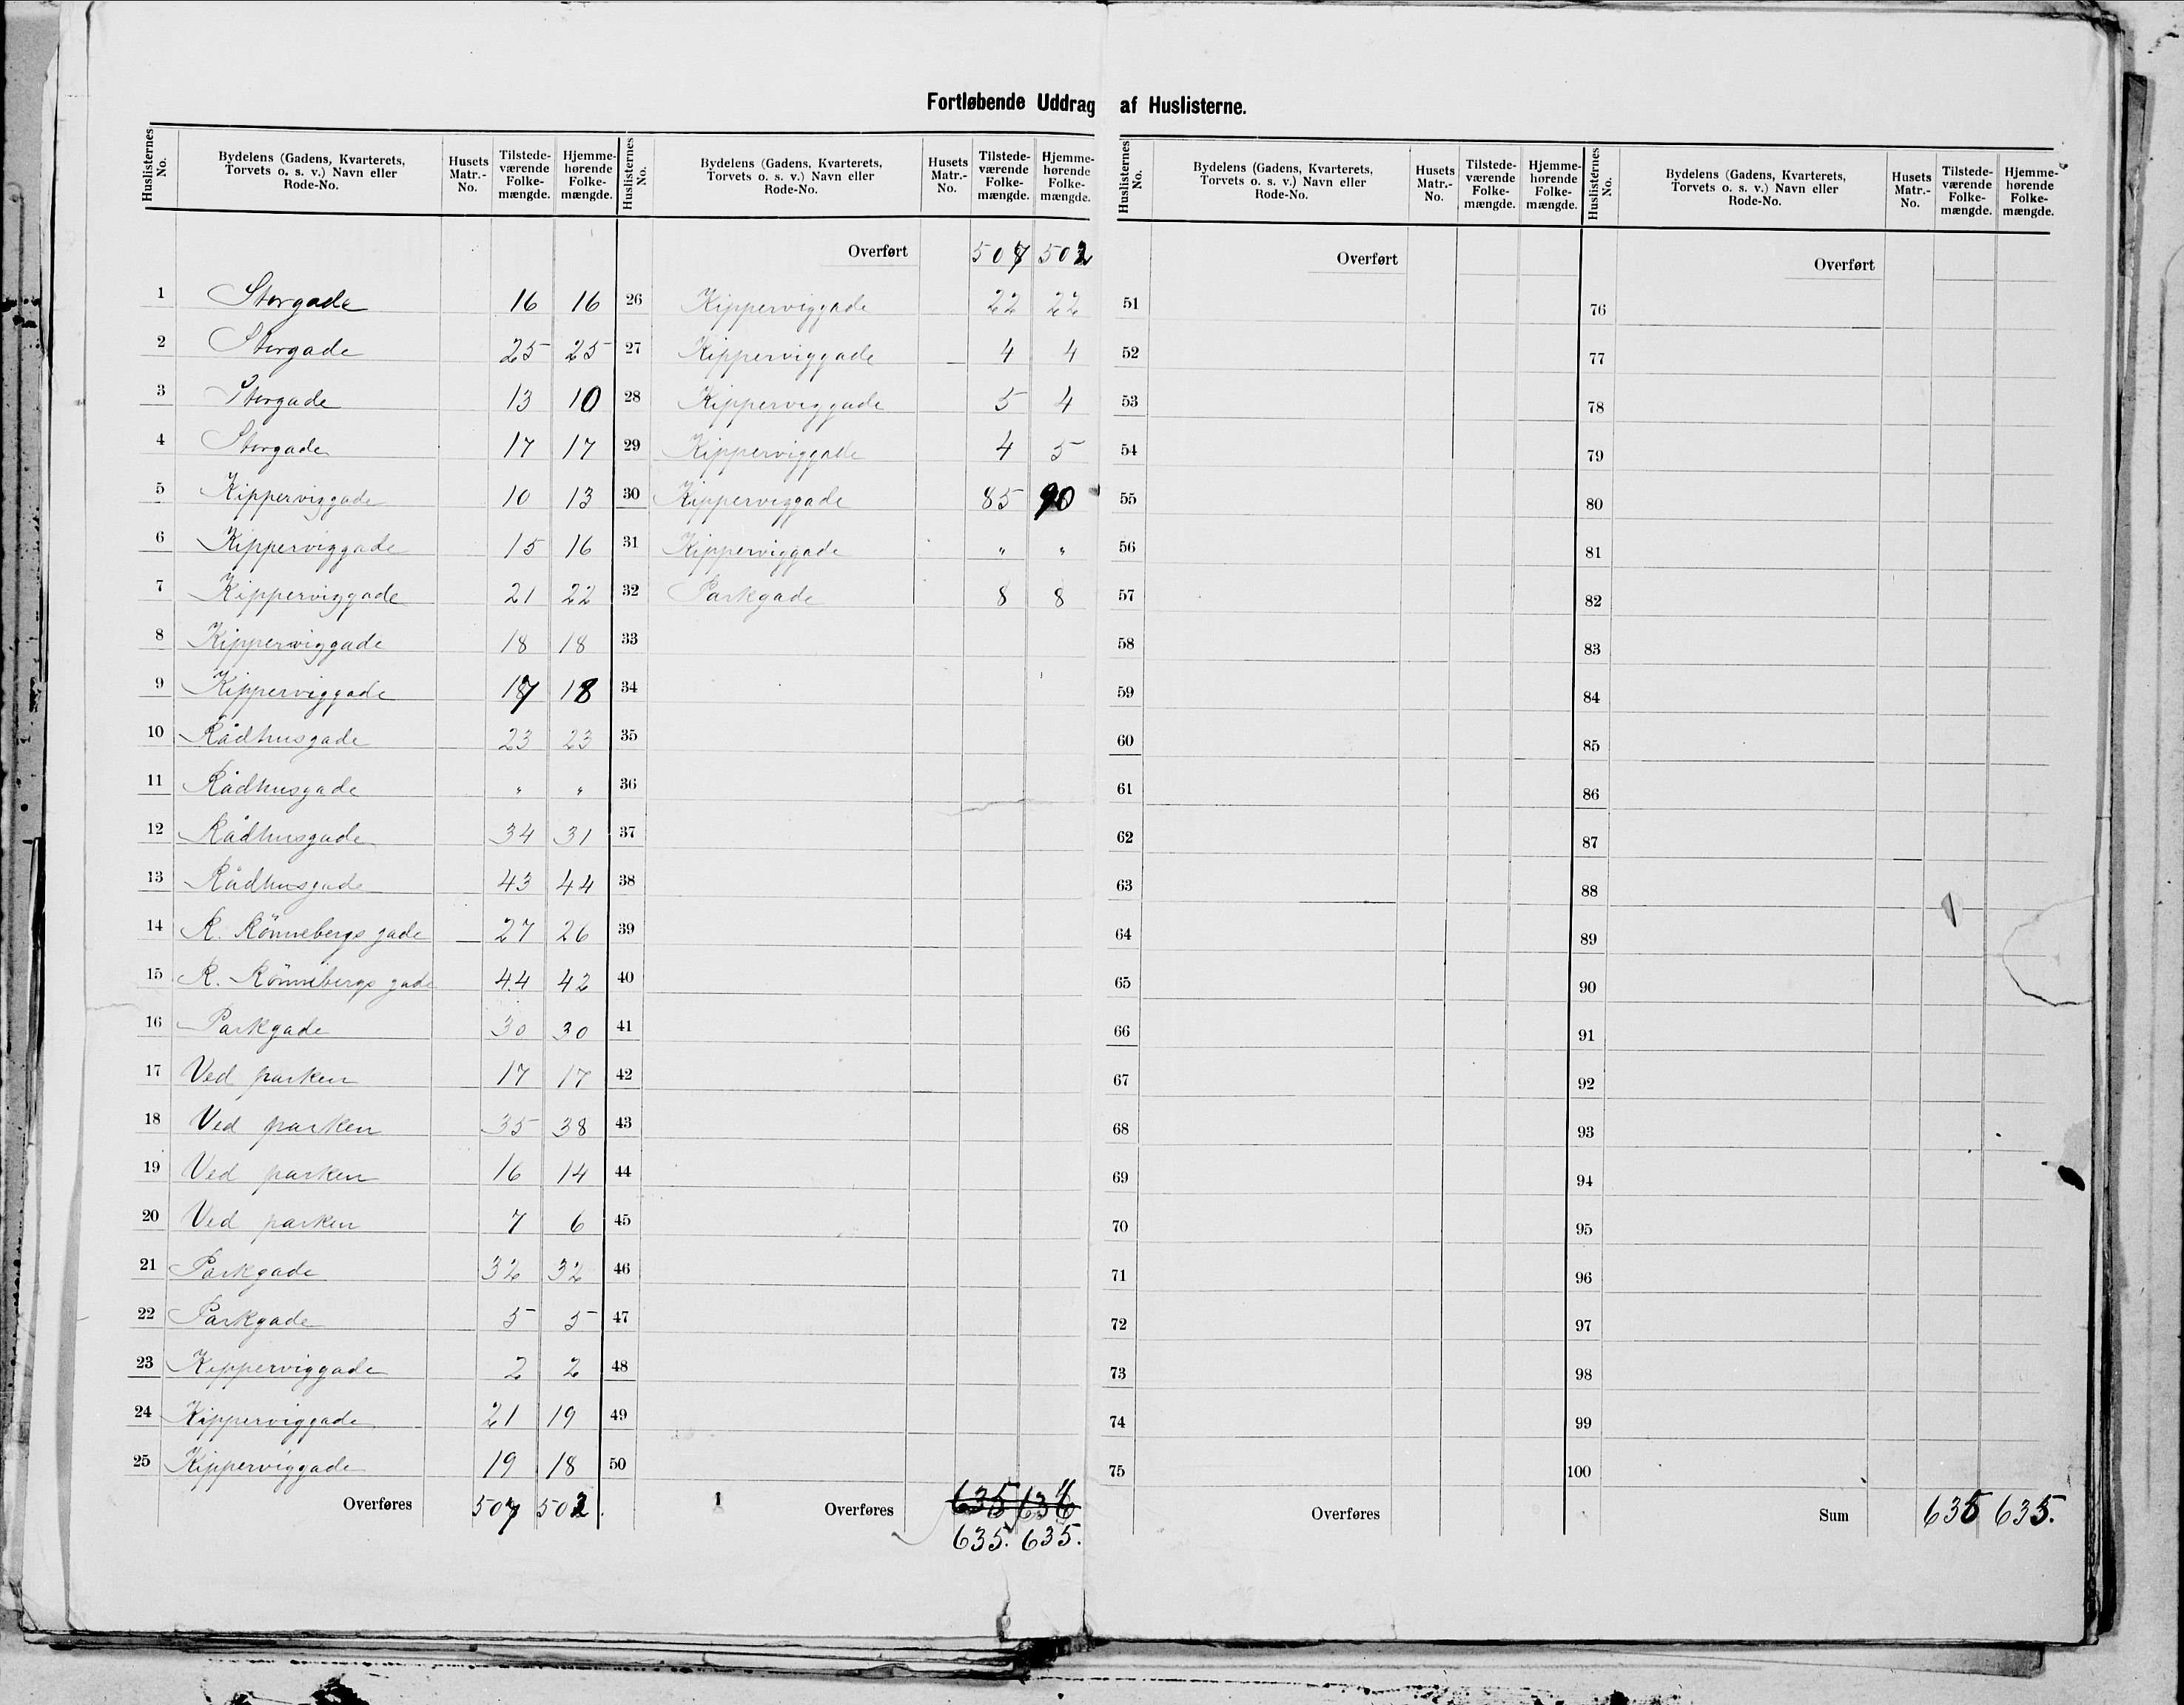 Fortløbende Uddrag af Huslisterne.
Huslisternes No. Bydelens (Gadens, Kvarterets, Torvets o. s. v.) Navn eller Rode-No. Husets Matr.-No. Tilstede-værende Folke-mængde. Hjemme-hørende Folke-mængde.
1 Storgade 16 16
2 Storgade 25 25
3 Storgade 13 10
4 Storgade 17 17
5 Kipperviggade 10 13
6 Kipperviggade 15 16
7 Kipperviggade 21 22
8 Kipperviggade 18 18
9 Kipperviggade 17 18
10 Rådhusgade 23 23
11 Rådhusgade " "
12 Rådhusgade 34 31
13 Rådhusgade 43 44
14 R. Rönnebergs gade 27 26
15 R. Rönnebergs gade 44 42
16 Parkgade 30 30
17 Ved parken 17 17
18 Ved parken 35 38
19 Ved parken 16 14
20 Ved parken 7 6
21 Parkgade 32 32
22 Parkgade 5 5
23 Kipperviggade 2 2
24 Kipperviggade 21 19
25 Kipperviggade 19 18
Overføres 507 502.
Huslisternes No. Bydelens (Gadens, Kvarterets, Torvets o. s. v.) Navn eller Rode-No. Husets Matr.-No. Tilstede-værende Folke-mængde. Hjemme-hørende Folke-mængde.
Overført 507 502
26 Kipperviggade 22 22
27 Kipperviggade 4 4
28 Kipperviggade 5 4
29 Kipperviggade 4 5
30 Kipperviggade 85 90
31 Kipperviggade " "
32 Parkgade 8 8
33
34
35
36
37
38
39
40
41
42
43
44
45
46
47
48
49
50
1 Overføres
635. 635.
Huslisternes No. Bydelens (Gadens, Kvarterets, Torvets o. s. v.) Navn eller Rode-No. Husets Matr.-No. Tilstede-værende Folke-mængde. Hjemme-hørende Folke-mængde.
Overført
51
52
53
54
55
56
57
58
59
60
61
62
63
64
65
66
67
68
69
70
71
72
73
74
75
Overføres
Huslisternes No. Bydelens (Gadens, Kvarterets, Torvets o. s. v.) Navn eller Rode-No. Husets Matr.-No. Tilstede-værende Folke-mængde. Hjemme-hørende Folke-mængde.
Overført
76
77
78
79
80
81
82
83
84
85
86
87
88
89
90
91
92
93
94
95
96
97
98
99
100
Sum 635 635.